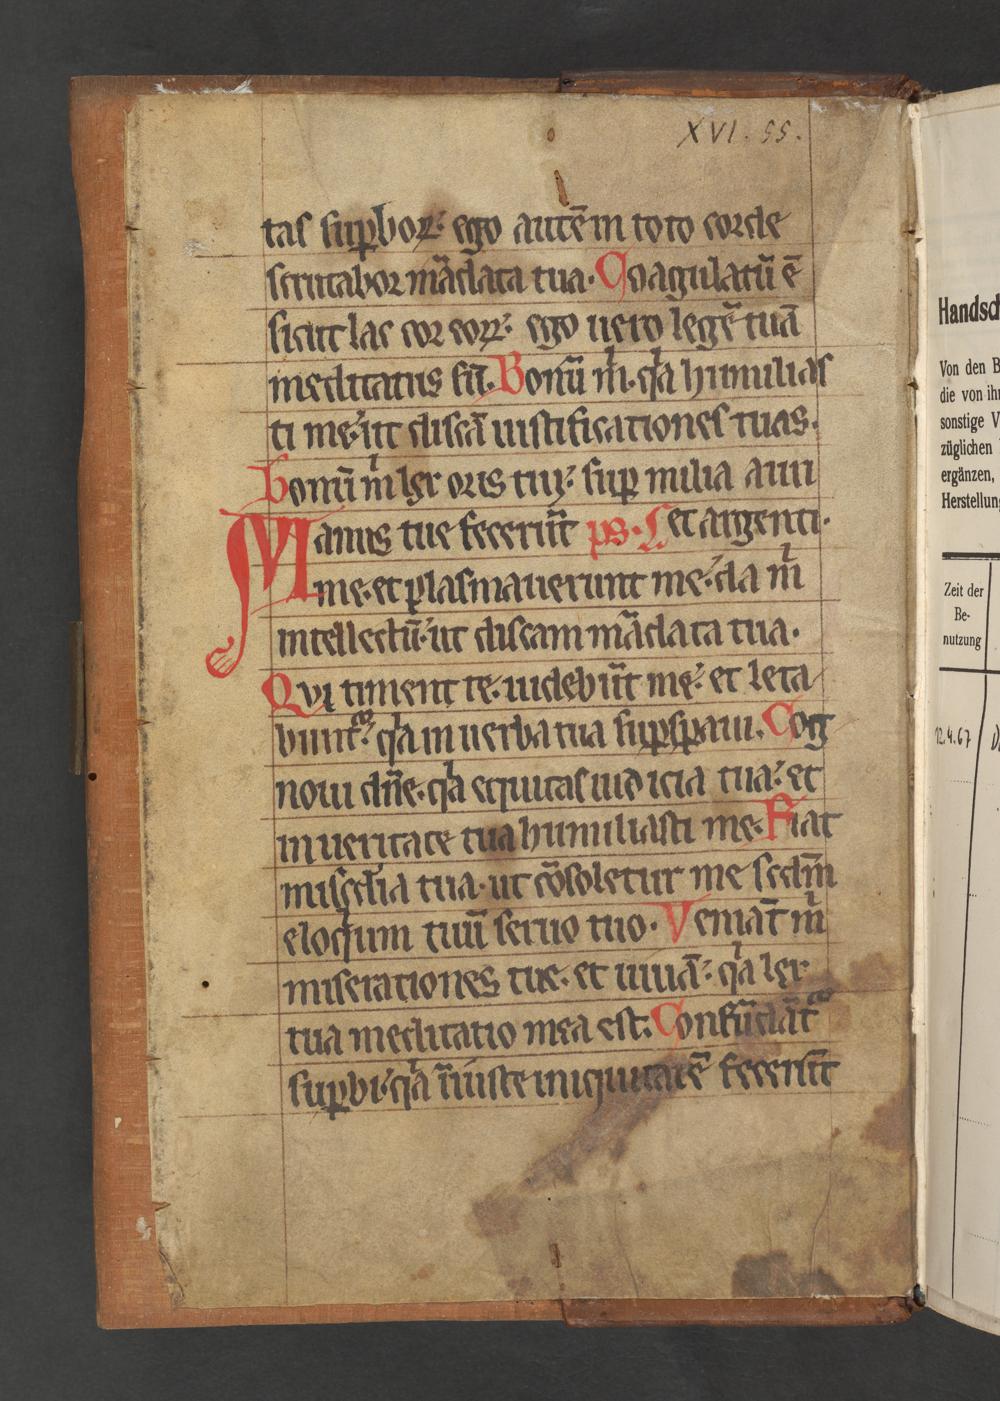 XVI. 55.
tas sup̱boꝝ: ego autē in toto corde
scrutabor mādata tua. Coagulatū ē
sicut lac cor eoꝝ: ego uero legē tuā
meditatus sū. Bonū m̊. q̇a humilias
ti me: ut discā iustificationes tuas.
Bonū m̊ lex oris tui: suꝑ milia auri
Manus tue fecerūt ps. Let argenti.
me. et plasmauerunt me: da m̊
intellectū: ut discam mādata tua.
Qvi timent te. uidebūt me: et leta
bunt᷑: q̇a in uerba tua suꝑsꝑaui. Cog
noui dn̄e. q̇a equitas iudicia tua: et
in ueritate tua humiliasti me. Fiat
mis̄cdia tua. ut cōsoletur me sedm̄
eloq̇um tuū seruo tuo. Veniāt m̊
miserationes tue. et uiuā: q̇a lex
tua meditatio mea est. Confūdāt᷑
suꝑbi. q̇a iniuste iniquitatē fecerūt
Handsch
Von den B
die von ihr
sonstige V
züglichen
ergänzen,
Herstellung
Zeit der
Be-
nutzung
12.4.67